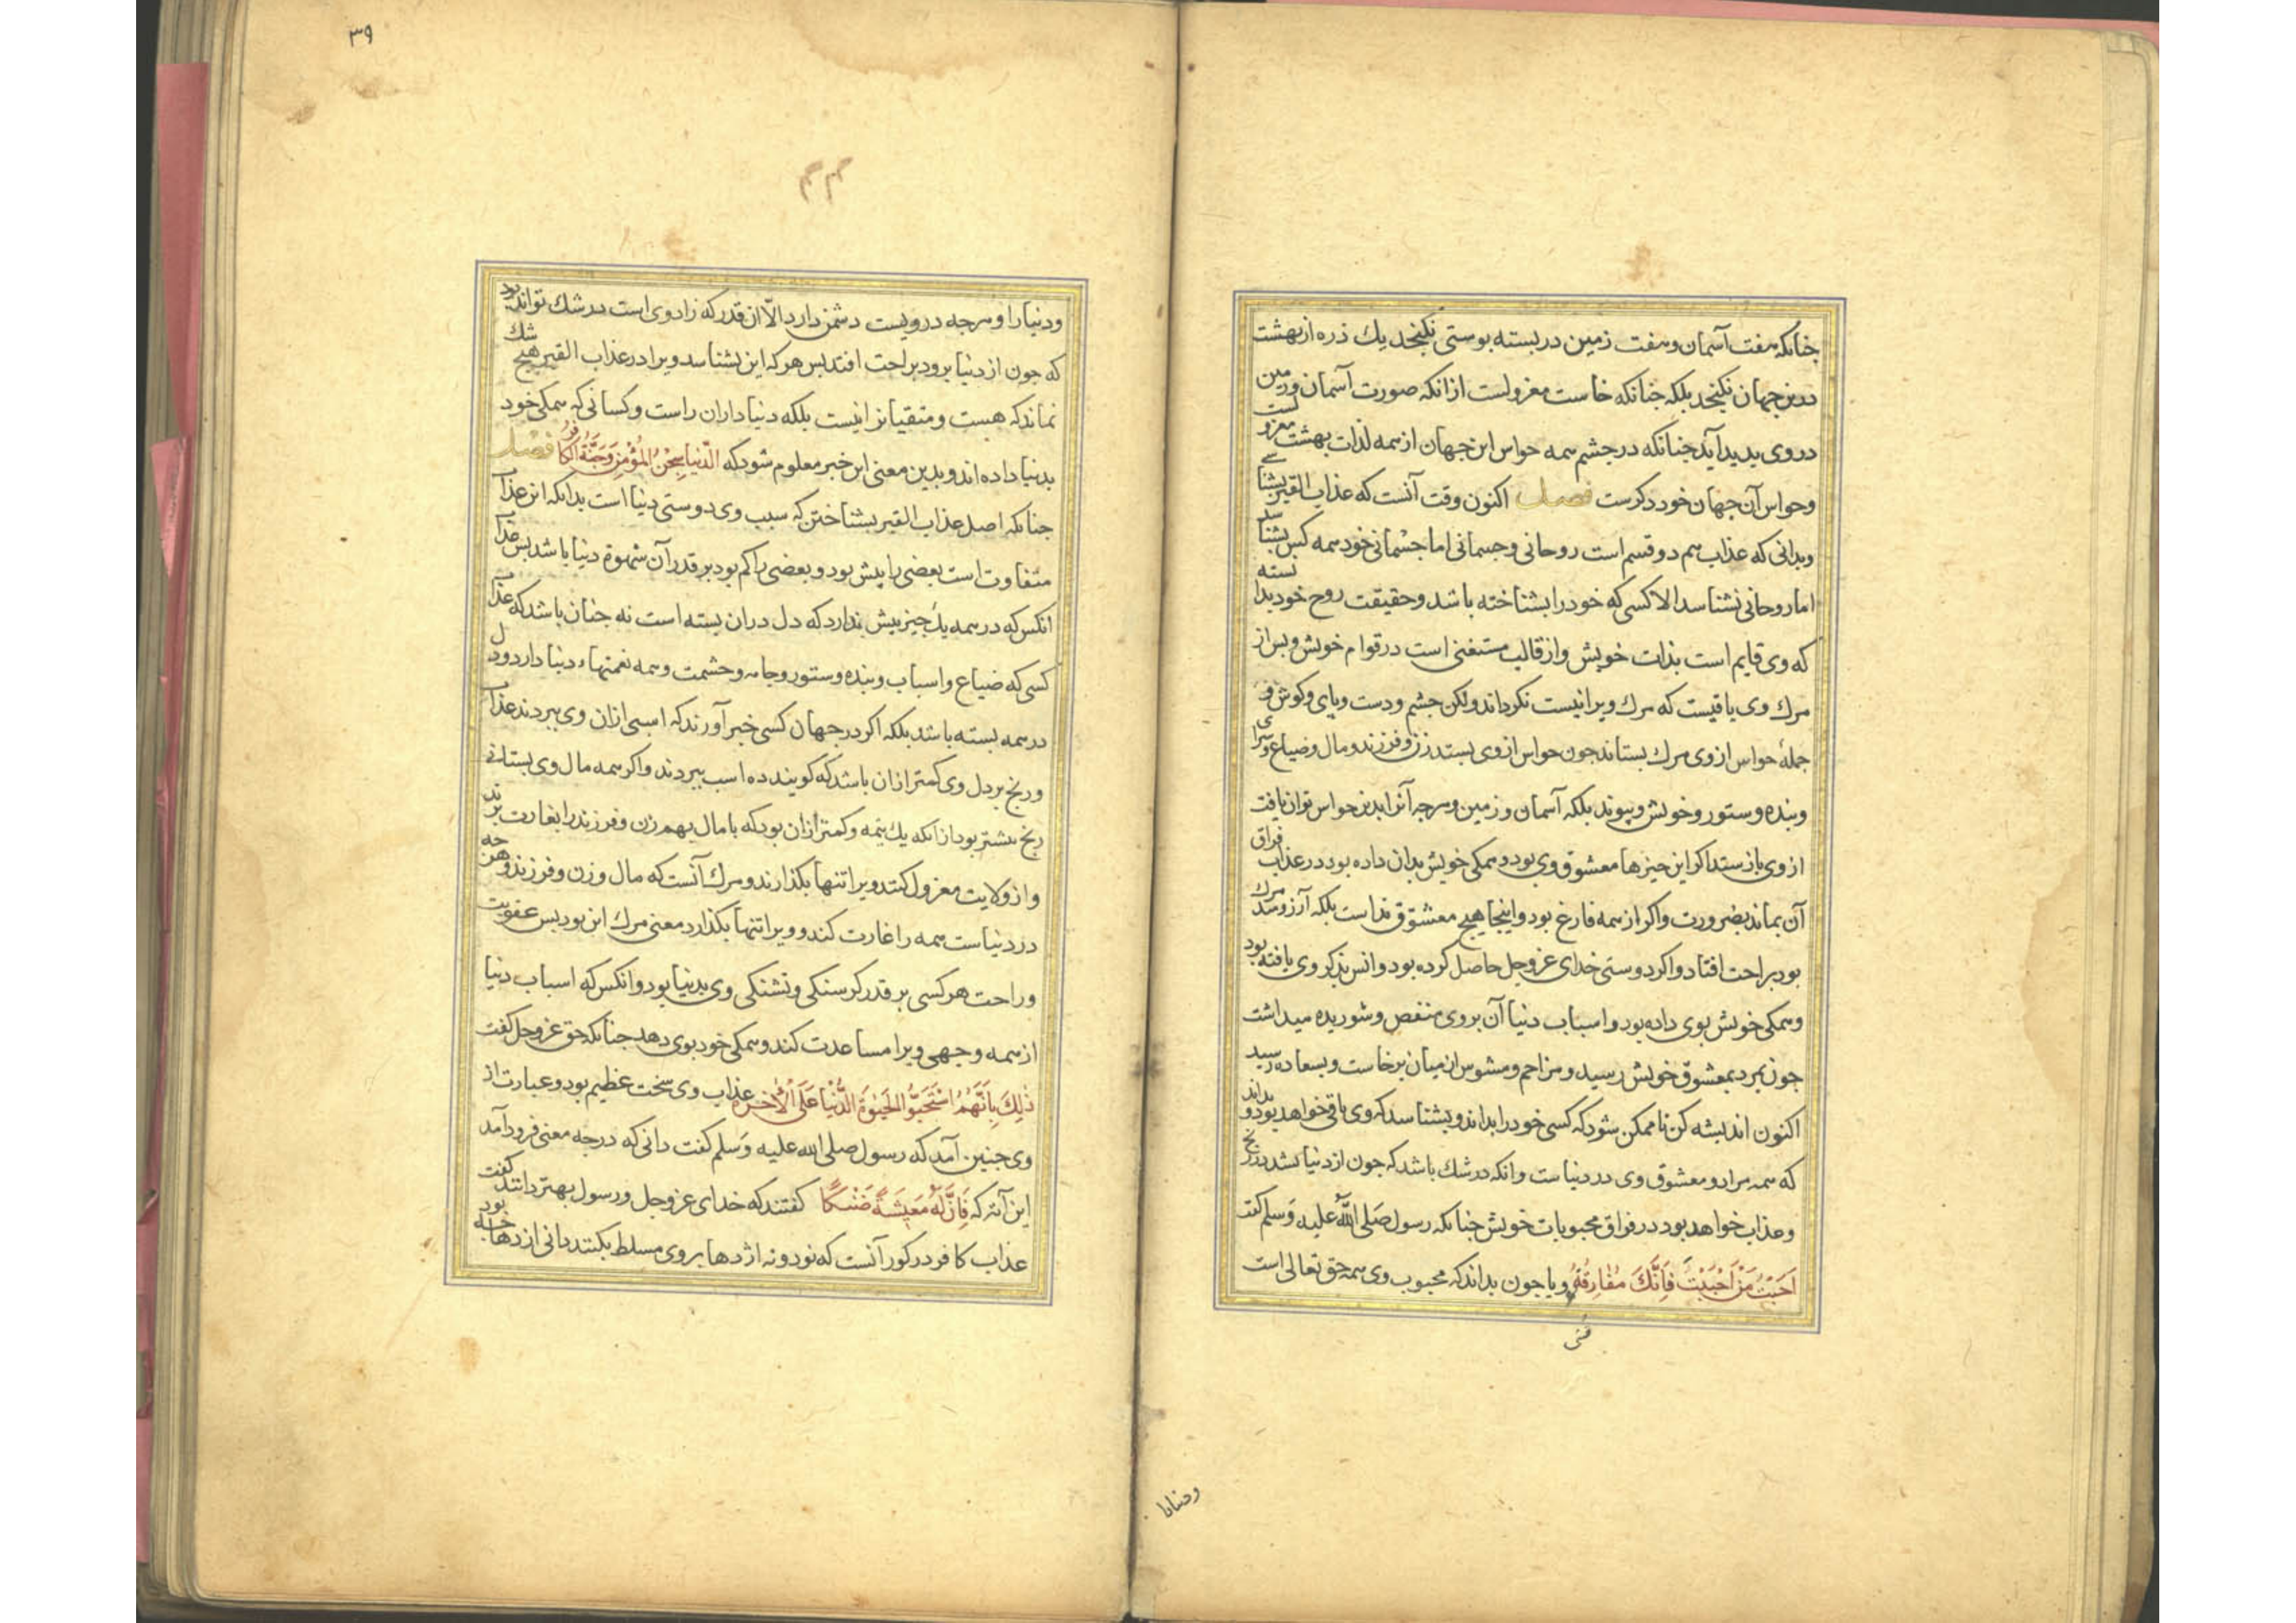 جنانکه هفت آسمان وهفت زمین در بسته بوستی نکنجد یك ذره از بهشت
درین جهان نکنجد بلکه جنانکه خاست معزولست ازانکه صورت آسمان و زمین
در وی بدید آید جنانکه در جشم همه حواس این جهان از همه لذات بهشت معزولست
وحواس آن جهان خود دکرست فصل اکنون وقت آنست که عذاب القبر بشناسی
وبدانی که عذاب هم دو قسم است روحانی وجسمانی اما جسمانی خود همه کس بشناسد
اما روحانی نشناسد الا کسی که خود را بشناخته باشد وحقیقت روح خود بدانسته
که وی قایم است بذات خویش واز قالب مستغنی است در قوام خویش وبس از
مرك وی باقیست که مرك ویرا نیست نکرداند ولکن جشم ودست وپای وکوش و
جملۀ حواس از وی مرك بستاند جون حواس از وی بستد زن وفرزند ومال وضیاع وسرای
وبنده وستور وخویش وپیوند بلکه آسمان وزمین وهرجه آنرا بدین حواس توان یافت
از وی باز ستد اکر این جیزها معشوق وی بود وهمکی خویش بدان داده بود در عذاب فراق
آن بماند بضرورت واکر از همه فارغ بود واینجا هیج معشوق نداست بلکه آرزومند مرك
بود براحت افتاد واکر دوستی خدای عزوجل حاصل کرده بود وانس بذکر وی یافته بود
وهمکی خویش بوی داده بود واسباب دنیا آن بروی منغص وشوریده میداشت
جون بمرد بمعشوق خویش رسید ومزاحم ومشوس از میان برخاست وبسعاده رسید
اکنون اندیشه کن تا ممکن شود که کسی خود را بداند وبشناسد که وی باقی خواهد بود وبداند
که همه مراد ومعشوق وی در دنیاست وانکه در شك باشد که جون از دنیا بشد در رنج
وعذاب خواهد بود در فراق محبوبات خویش جنانکه رسول صلی الله علیه وسلم کفت
اَحبب مَن اَحببتَ فَاِنَّكَ مُفارِقُهُ ویا جون بداند که محبوب وی همه حق تعالی است
٣٩
ودنیا را وهرجه درویست دشمن دارد الّا آن قدر که زاد وی است در شك تواند بود
که جون از دنیا برود براحت افتد بس هرکه این بشناسد ویرا در عذاب القبر هیج شك
نماند که هست ومتقیانرا نیست بلکه دنیا داران راست وکسانی که همکی خود
بدنیا داده اند وبدین معنی این خبر معلوم شود که الدّنیا سِجْنُ المُؤمِنِ وَجَنَّةُ الکافر فصل
جنانکه اصل عذاب القبر بشناختی که سبب وی دوستی دنیا است بدانکه این عذاب
متفاوت است بعضی را بیش بود وبعضی را کم بود بر قدر آن شهوة دنیا باشد بس عذاب
انکس که در همه یك جیز بیش ندارد که دل دران بسته است نه جنان باشد که عذاب
کسی که ضیاع واسباب وبنده وستور وجامه وحشمت وهمه نعمتهاء دنیا دارد ودل
در همه بسته باشد بلکه اکر در جهان کسی خبر آورند که اسبی ازان وی ببردند عذاب
ورنج بر دل وی کمتر ازان باشد که کویند ده اسب ببردند واکر همه مال وی بستانند
رنج بیشتر بود ازانکه یك نیمه وکمتر ازان بود که با مال بهم زن وفرزند را بغارت برند
واز ولایت معزول کنند ویرا تنها بکذارند ومرك آنست که مال وزن وفرزند وهرجه
در دنیاست همه را غارت کند وویرا تنها بکذارد معنی مرك این بود بس عقوبت
وراحت هرکسی بر قدر کرسنکی وتشنکی وی بدنیا بود وانکس که اسباب دنیا
از همه وجهی ویرا مساعدت کند وهمکی خود بوی دهد جنانکه حق عزوجل کفت
ذٰلِكَ بِاَنَّهُمُ اسْتَحَبُّوا الحَیٰوةَ الدُّنْیا عَلَی الْاٰخرة عذاب وی سخت عظیم بود وعبارت از
وی جنین آمد که رسول صلی الله علیه وَسلم کفت دانی که درجه معنی فرود آمد
این آیه که فَاِنَّ لَهُ مَعیشَةً ضَنْکًا کفتند که خدای عزوجل ورسول بهتر دانند کفت
عذاب کافر در کور آنست که نود ونه اژدها بر وی مسلط بکنند دانی اژدها جه بود